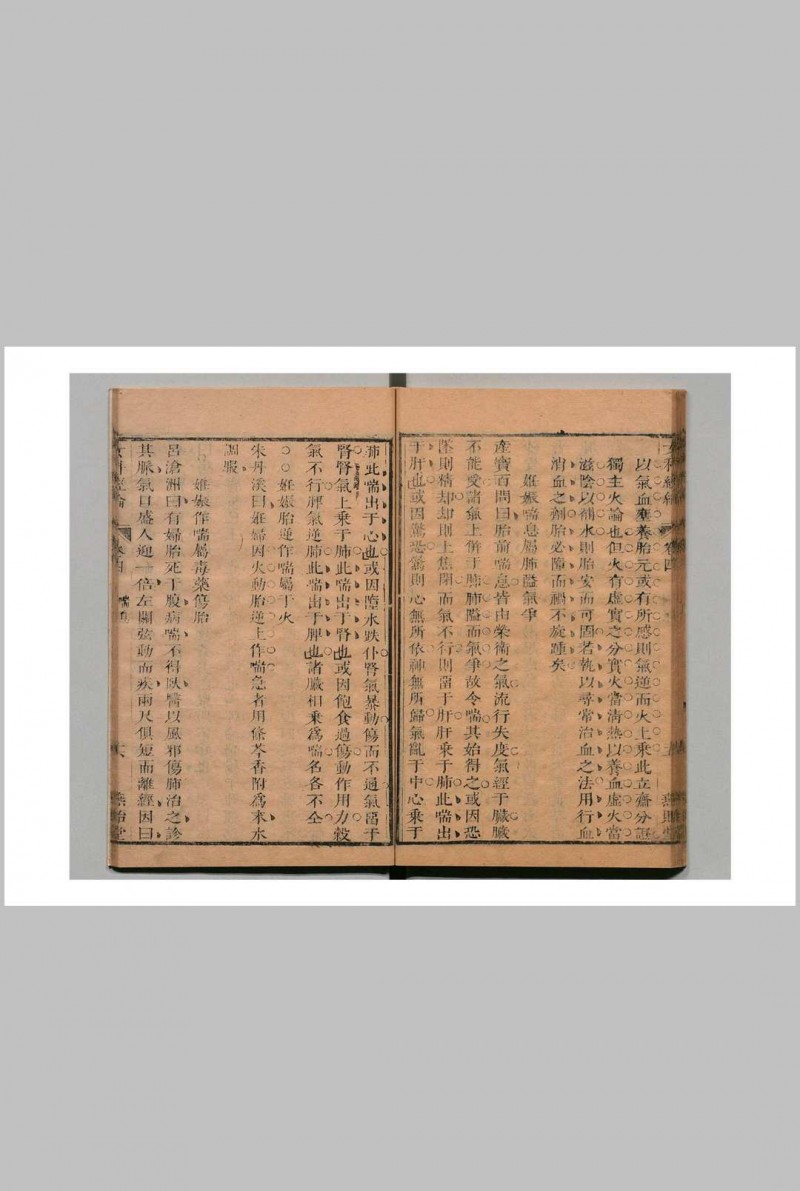 以氣血壅養胎元或有所感則氣逆而火上乘此立齋分證
獨主火論也但火有虛實之分實火當清熱以養血虛火當
滋陰以補水則胎安而可固若執以尋常治血之法用行血
消血之劑胎必隨而禍不旋踵矣
妊娠喘息屬肺隘氣爭
產寶百問曰胎前喘息皆由榮衛之氣流行失度氣經于臟臟
不能受諸氣上併于肺肺隘而氣爭故令喘其始得之或因恐
墜則精却却則上焦閉而氣不行則畱于肝肝乘于肺此喘出
于肝也或因驚恐驚則心無所依神無所歸氣亂于中心乘于
肺此喘出于心也或因墮水跌仆腎氣暴動傷而不通氣畱于
腎腎氣上乘于肺此喘出于腎也或因飽食過傷動作用力穀
氣不行脾氣逆肺此喘出于脾也諸臟相乘爲喘名各不仝
妊娠胎逆作喘屬于火
朱丹溪曰妊婦因火動胎逆上作喘急者用條芩香附爲末水
調服
妊娠作喘屬毒藥傷胎
呂滄洲曰有婦胎死于腹病喘不得臥醫以風邪傷肺治之診
其脈氣口盛人迎一倍左關弦動而疾兩尺俱短而離經因曰
卷四